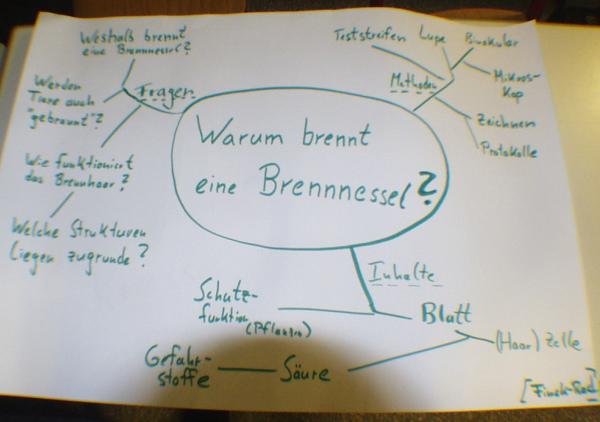 Warum brennt
eine Brennnessel?
Fragen
Weshalb brennt
eine Brennnessel?
Werden
Tiere auch
"gebrannt"?
Wie funktioniert
das Brennhaar?
Welche Strukturen
liegen zugrunde?
Methoden
Teststreifen
Lupe
Binokular
Mikros-
kop
Zeichnen
Protokolle
Inhalte
Schutz-
funktion
(Pflanzen)
Blatt
(Haar) Zelle
Säure
Gefahr-
stoffe